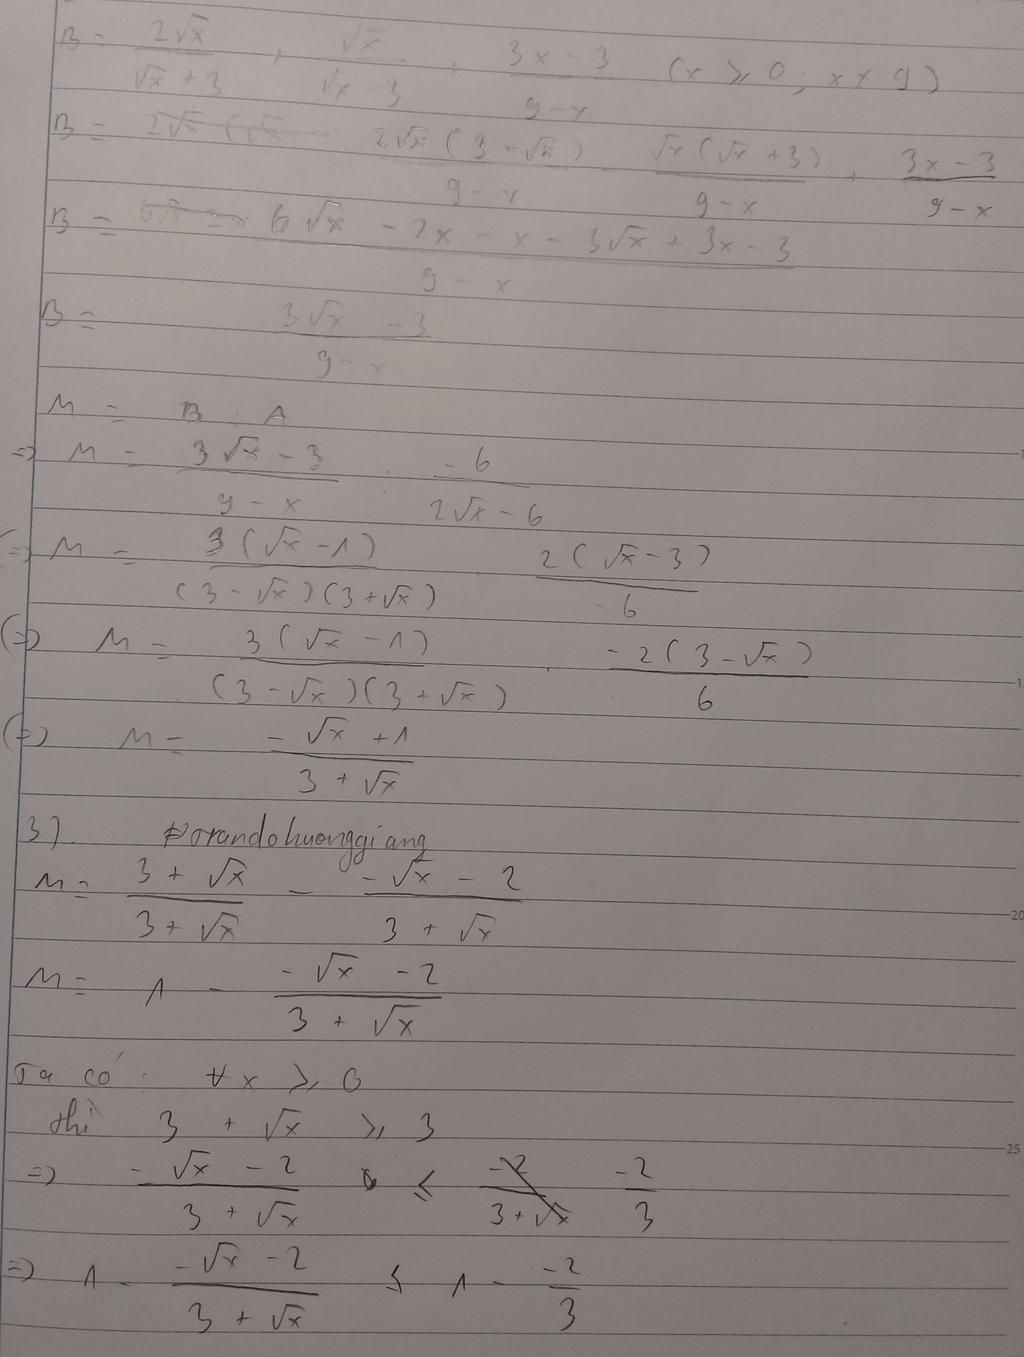 B = 2√x / (√x + 3) + √x / (√x - 3) + (3x - 3) / (9 - x) (x ≥ 0; x ≠ 9)
B = 2√x(3 - √x) / (9 - x) √x(√x + 3) / (9 - x) + (3x - 3) / (9 - x)
B = (6√x - 2x - x - 3√x + 3x - 3) / (9 - x)
B = (3√x - 3) / (9 - x)
M = B : A
=> M = (3√x - 3) / (9 - x) : -6 / (2√x - 6)
(=) M = 3(√x - 1) / (3 - √x)(3 + √x) . 2(√x - 3) / -6
(=) M = 3(√x - 1) / (3 - √x)(3 + √x) . -2(3 - √x) / 6
(=) M = (-√x + 1) / (3 + √x)
3).
M = (3 + √x) / (3 + √x) - (-√x - 2) / (3 + √x)
M = 1 - (-√x - 2) / (3 + √x)
Ta có: ∀x ≥ 0
thì 3 + √x ≥ 3
=> (-√x - 2) / (3 + √x) ≤ -2 / (3 + √x) -2 / 3
=> 1 - (-√x - 2) / (3 + √x) ≤ 1 - -2 / 3
20
25